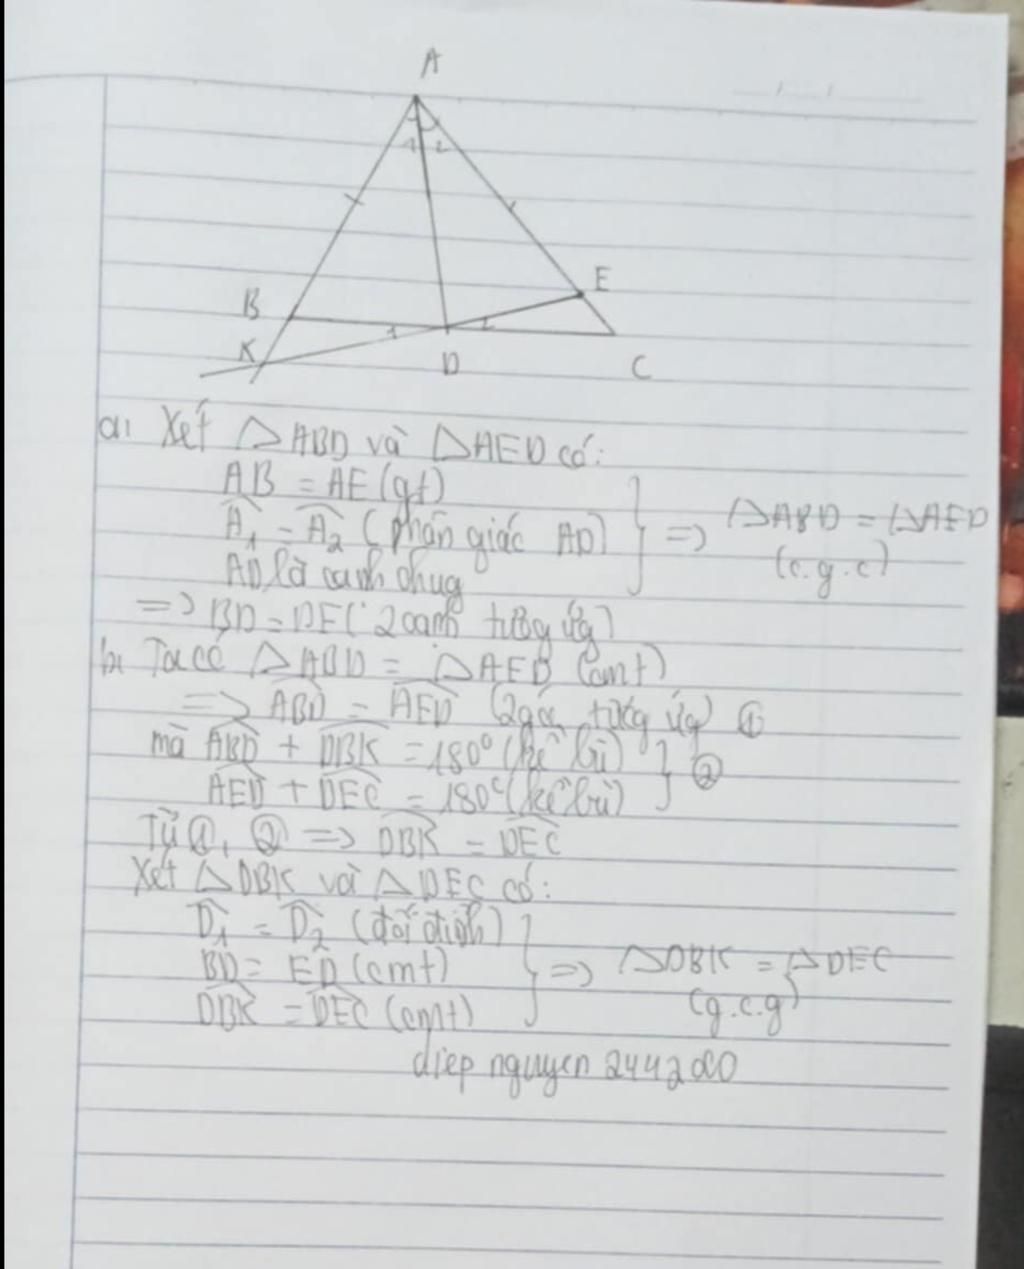 A
1 2
E
B
1 2
K
D
C
a, Xét △ABD và △AED có:
AB = AE (gt)
Â₁ = Â₂ (phân giác AD)
AD là cạnh chug
} => △ABD = △AED
(c.g.c)
=> BD = DE (2 cạnh tương ứg)
b, Ta có △ABD = △AED (cmt)
=> ABD̂ = AED̂ (2 góc tương ứg) ①
mà ABD̂ + DBK̂ = 180° (kề bù)
AED̂ + DEĈ = 180° (kề bù)
} ②
Từ ①, ② => DBK̂ = DEĈ
Xét △DBK và △DEC có:
D̂₁ = D̂₂ (đối đỉnh)
BD = ED (cmt)
DBK̂ = DEĈ (cmt)
} => △DBK = △DEC
(g.c.g)
diep nguyen 2442000